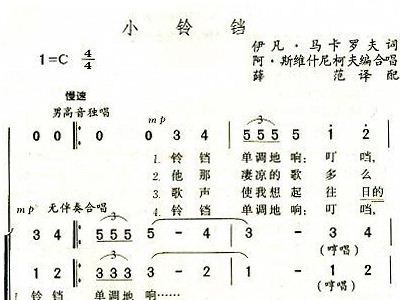 小铃铛
1=C 4/4
伊凡·马卡罗夫词
阿·斯维什尼柯夫编合唱
薛范译配
慢速
男高音独唱
mp 3
0 0 0 3 4 5 5 5 5 1 2
1. 铃铛 单调地响：叮当，
2. 他那 凄凉的歌多么
3. 歌声 使我想起往日的
4. 铃铛 单调地响：叮当，
mp 无伴奏合唱
3
3 4 5 5 5 5 - 4 3 - 3 4
(哼唱)
3
1 2 3 3 3 3 - 2 1 - 1 2
(哼唱)
1. 铃铛 单调地 响……